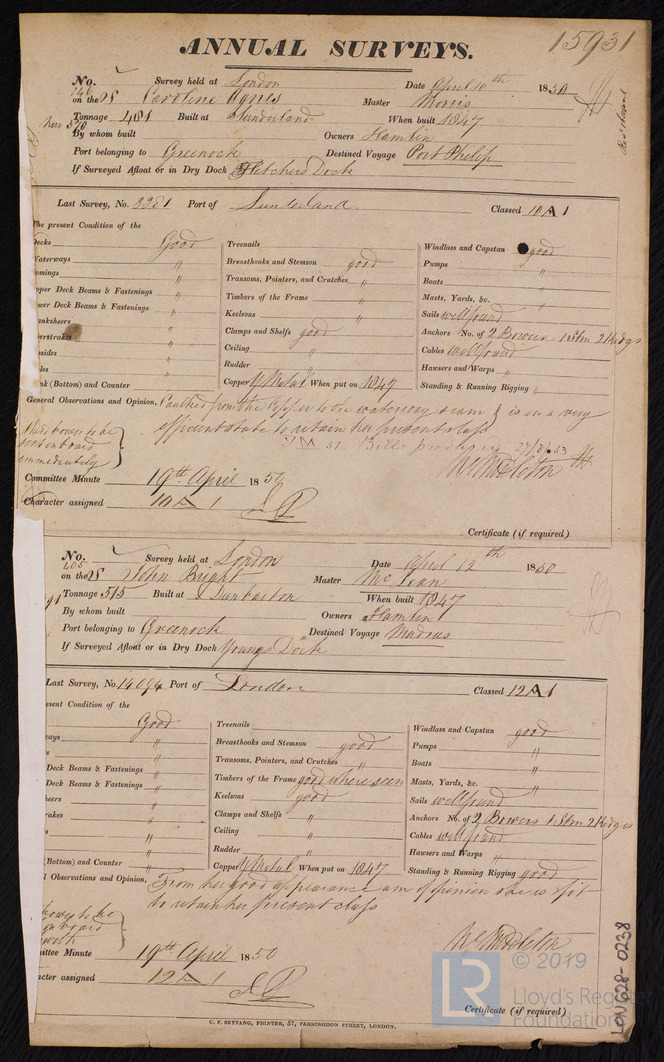 ANNUAL SURVEYS. 15931
No. 146 Survey held at London Date April 10th 1850
on the S Caroline Agnes Master Morris
Tonnage 481 Built at Sunderland When built 1847
New 570
By whom built Owners Hamlin
Port belonging to Greenock Destined Voyage Port Philip
If Surveyed Afloat or in Dry Dock Fletchers Dock
Last Survey, No. 3381 Port of Sunderland Classed 10 A 1
The present Condition of the
Decks Good
Waterways "
omings "
pper Deck Beams & Fastenings "
ower Deck Beams & Fastenings "
anksheers "
verstrakes "
psides "
les "
nk (Bottom) and Counter "
Treenails
Breasthooks and Stemson good
Transoms, Pointers, and Crutches "
Timbers of the Frame "
Keelsons "
Clamps and Shelfs good
Ceiling "
Rudder "
Copper Y Metal When put on 1847
Windlass and Capstan good
Pumps "
Boats "
Masts, Yards, &c. "
Sails well found
Anchors No. of 2 Bowers 1 Stm 2 Kedgs
Cables well found
Hawsers and Warps "
Standing & Running Rigging "
General Observations and Opinion, Caulked from the Copper to the waterway seam & is in a very
efficient state to retain her present class
bower to be
sent on board
immediately
27/8/53
Wm Middleton
Committee Minute 19th April 1850
Character assigned 10 A 1
Certificate (if required)
No. 205 Survey held at London Date April 12th 1850
on the S John Bright Master McLean
Tonnage 515 Built at Dunbarton When built 1847
By whom built Owners Hamlin
Port belonging to Greenock Destined Voyage Madras
If Surveyed Afloat or in Dry Dock Youngs Dock
Last Survey, No. 14094 Port of London Classed 12 A 1
esent Condition of the
Good
ays "
s "
Deck Beams & Fastenings "
Deck Beams & Fastenings "
heers "
rakes "
"
"
(Bottom) and Counter "
Treenails
Breasthooks and Stemson good
Transoms, Pointers, and Crutches "
Timbers of the Frame good where seen
Keelsons good
Clamps and Shelfs "
Ceiling "
Rudder "
Copper Y Metal When put on 1847
Windlass and Capstan good
Pumps "
Boats "
Masts, Yards, &c. "
Sails well found
Anchors No. of 2 Bowers 1 Stm 2 Kedgs
Cables well found
Hawsers and Warps "
Standing & Running Rigging good
l Observations and Opinion, From her good appearance am of opinion she is fit
to retain her present class
bower to be
on board
Wm Middleton
ittee Minute 19th April 1850
acter assigned 12 A 1
Certificate (if required)
C. F. SEYFANG, PRINTER, 57, FARRINGDON STREET, LONDON.
LON628-0238
LR © 2019
Lloyd's Register
Foundation